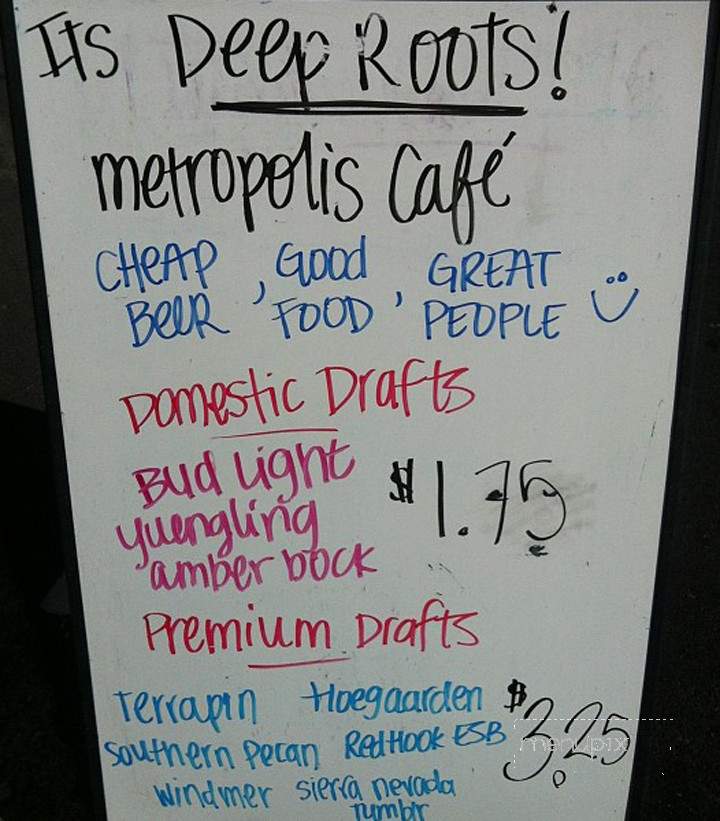 Its Deep Roots!
metropolis Café
CHEAP , Good , GREAT
BEER FOOD PEOPLE
Domestic Drafts
Bud Light
yuengling $1.75
amber bock
Premium Drafts
Terrapin Hoegaarden $3.25
Southern Pecan RedHook ESB
windmer sierra nevada
Tumblr
menupix